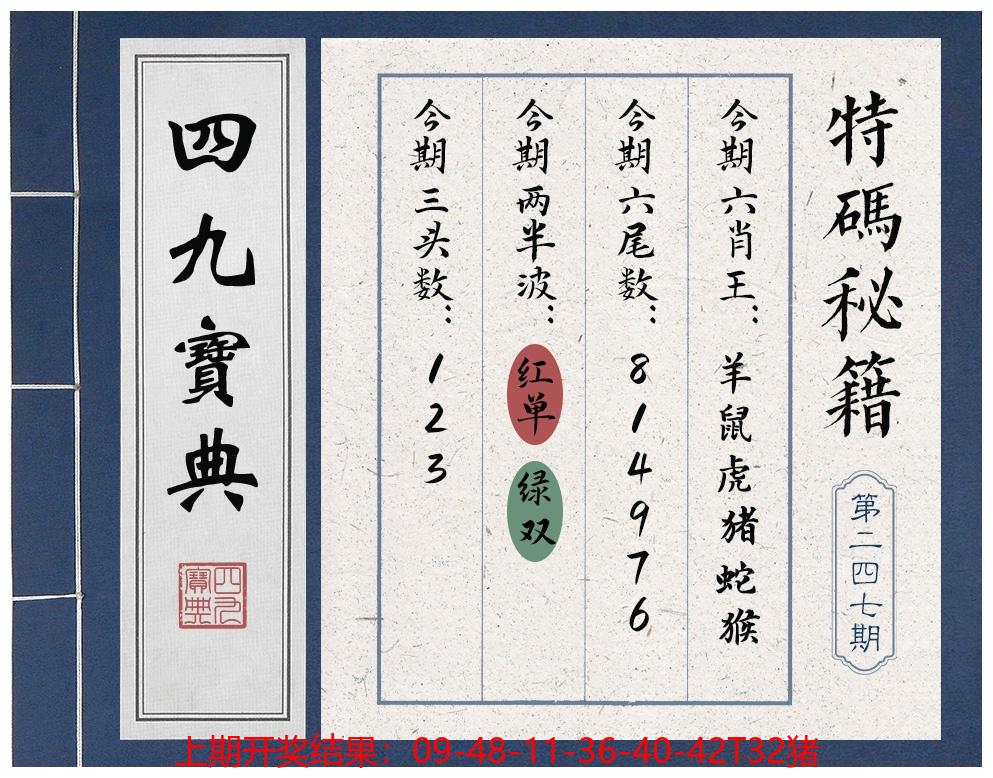 特碼秘籍
第二四七期
今期六肖王：羊鼠虎猪蛇猴
今期六尾数：814976
今期两半波：红单 绿双
今期三头数：123
四九寶典
四九寶典
上期开奖结果：09-48-11-36-40-42T32猪